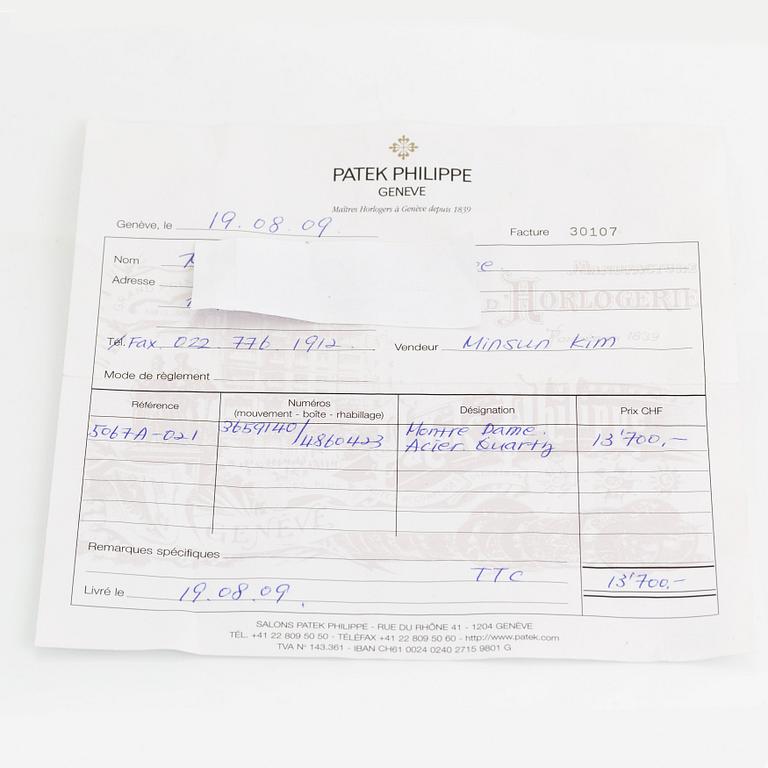 PATEK PHILIPPE
GENEVE
Maîtres Horlogers à Genève depuis 1839
Genève, le 19.08.09.
Facture 30107
Nom
Adresse
D'HORLOGERIE
1839
Tél./Fax 022 776 1912
Vendeur Minsun Kim
Mode de règlement
Référence Numéros Désignation Prix CHF
(mouvement - boîte - rhabillage)
5067A-021 3659140/4860423 Montre Dame. 13'700,-
Acier Quartz
GENÈVE
Remarques spécifiques
TTC 13'700.-
Livré le 19.08.09.
SALONS PATEK PHILIPPE - RUE DU RHÔNE 41 - 1204 GENÈVE
TÉL. +41 22 809 50 50 - TÉLÉFAX +41 22 809 50 60 - http://www.patek.com
TVA N° 143.361 - IBAN CH61 0024 0240 2715 9801 G